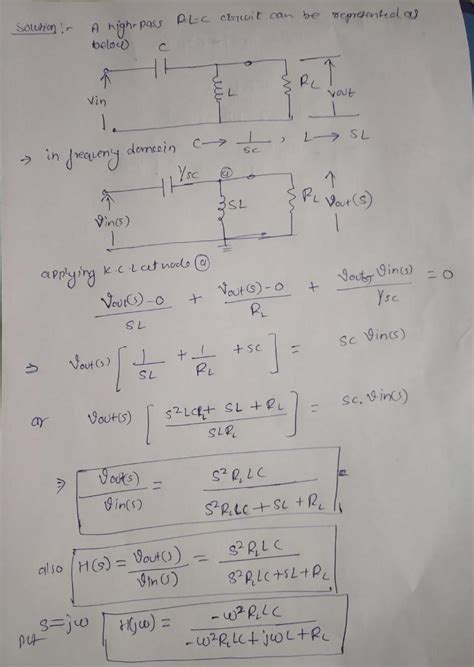 Solution:- A high-pass RLC circuit can be represented as
below)
C
Vin
L
RL
Vout
→ in frequency domain C → 1/SC , L → SL
1/SC
@
Vin(s)
SL
RL
Vout(s)
applying K.C.L at node @
(Vout(s)-0)/SL + (Vout(s)-0)/RL + (Vout - Vin(s))/(1/SC) = 0
⇒ Vout(s) [ 1/SL + 1/RL + SC ] = SC Vin(s)
or Vout(s) [ (S²LCRL + SL + RL)/(SLRL) ] = SC. Vin(s)
⇒ Vout(s)/Vin(s) = S²RLLC/(S²RLLC + SL + RL)
also H(s) = Vout(s)/Vin(s) = S²RLLC/(S²RLLC + SL + RL)
put S = jω H(jω) = -ω²RLLC/(-ω²RLLC + jωL + RL)